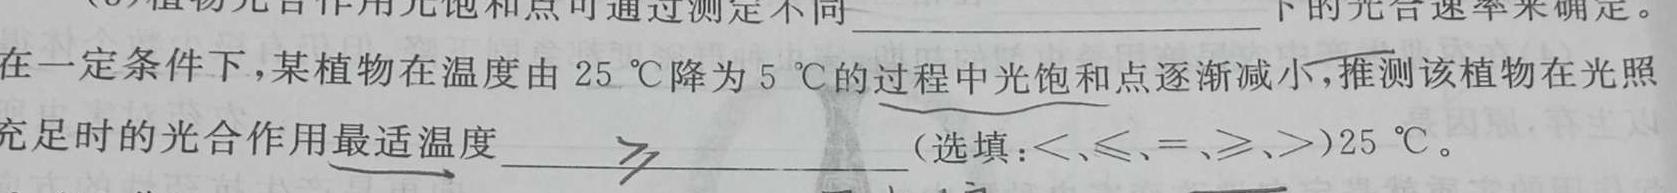 植物光合作用光饱和点可通过测定不同________下的光合速率来确定。
在一定条件下,某植物在温度由 25 ℃降为 5 ℃的过程中光饱和点逐渐减小,推测该植物在光照
充足时的光合作用最适温度____⩾____(选填:<、⩽、=、⩾、>)25 ℃。